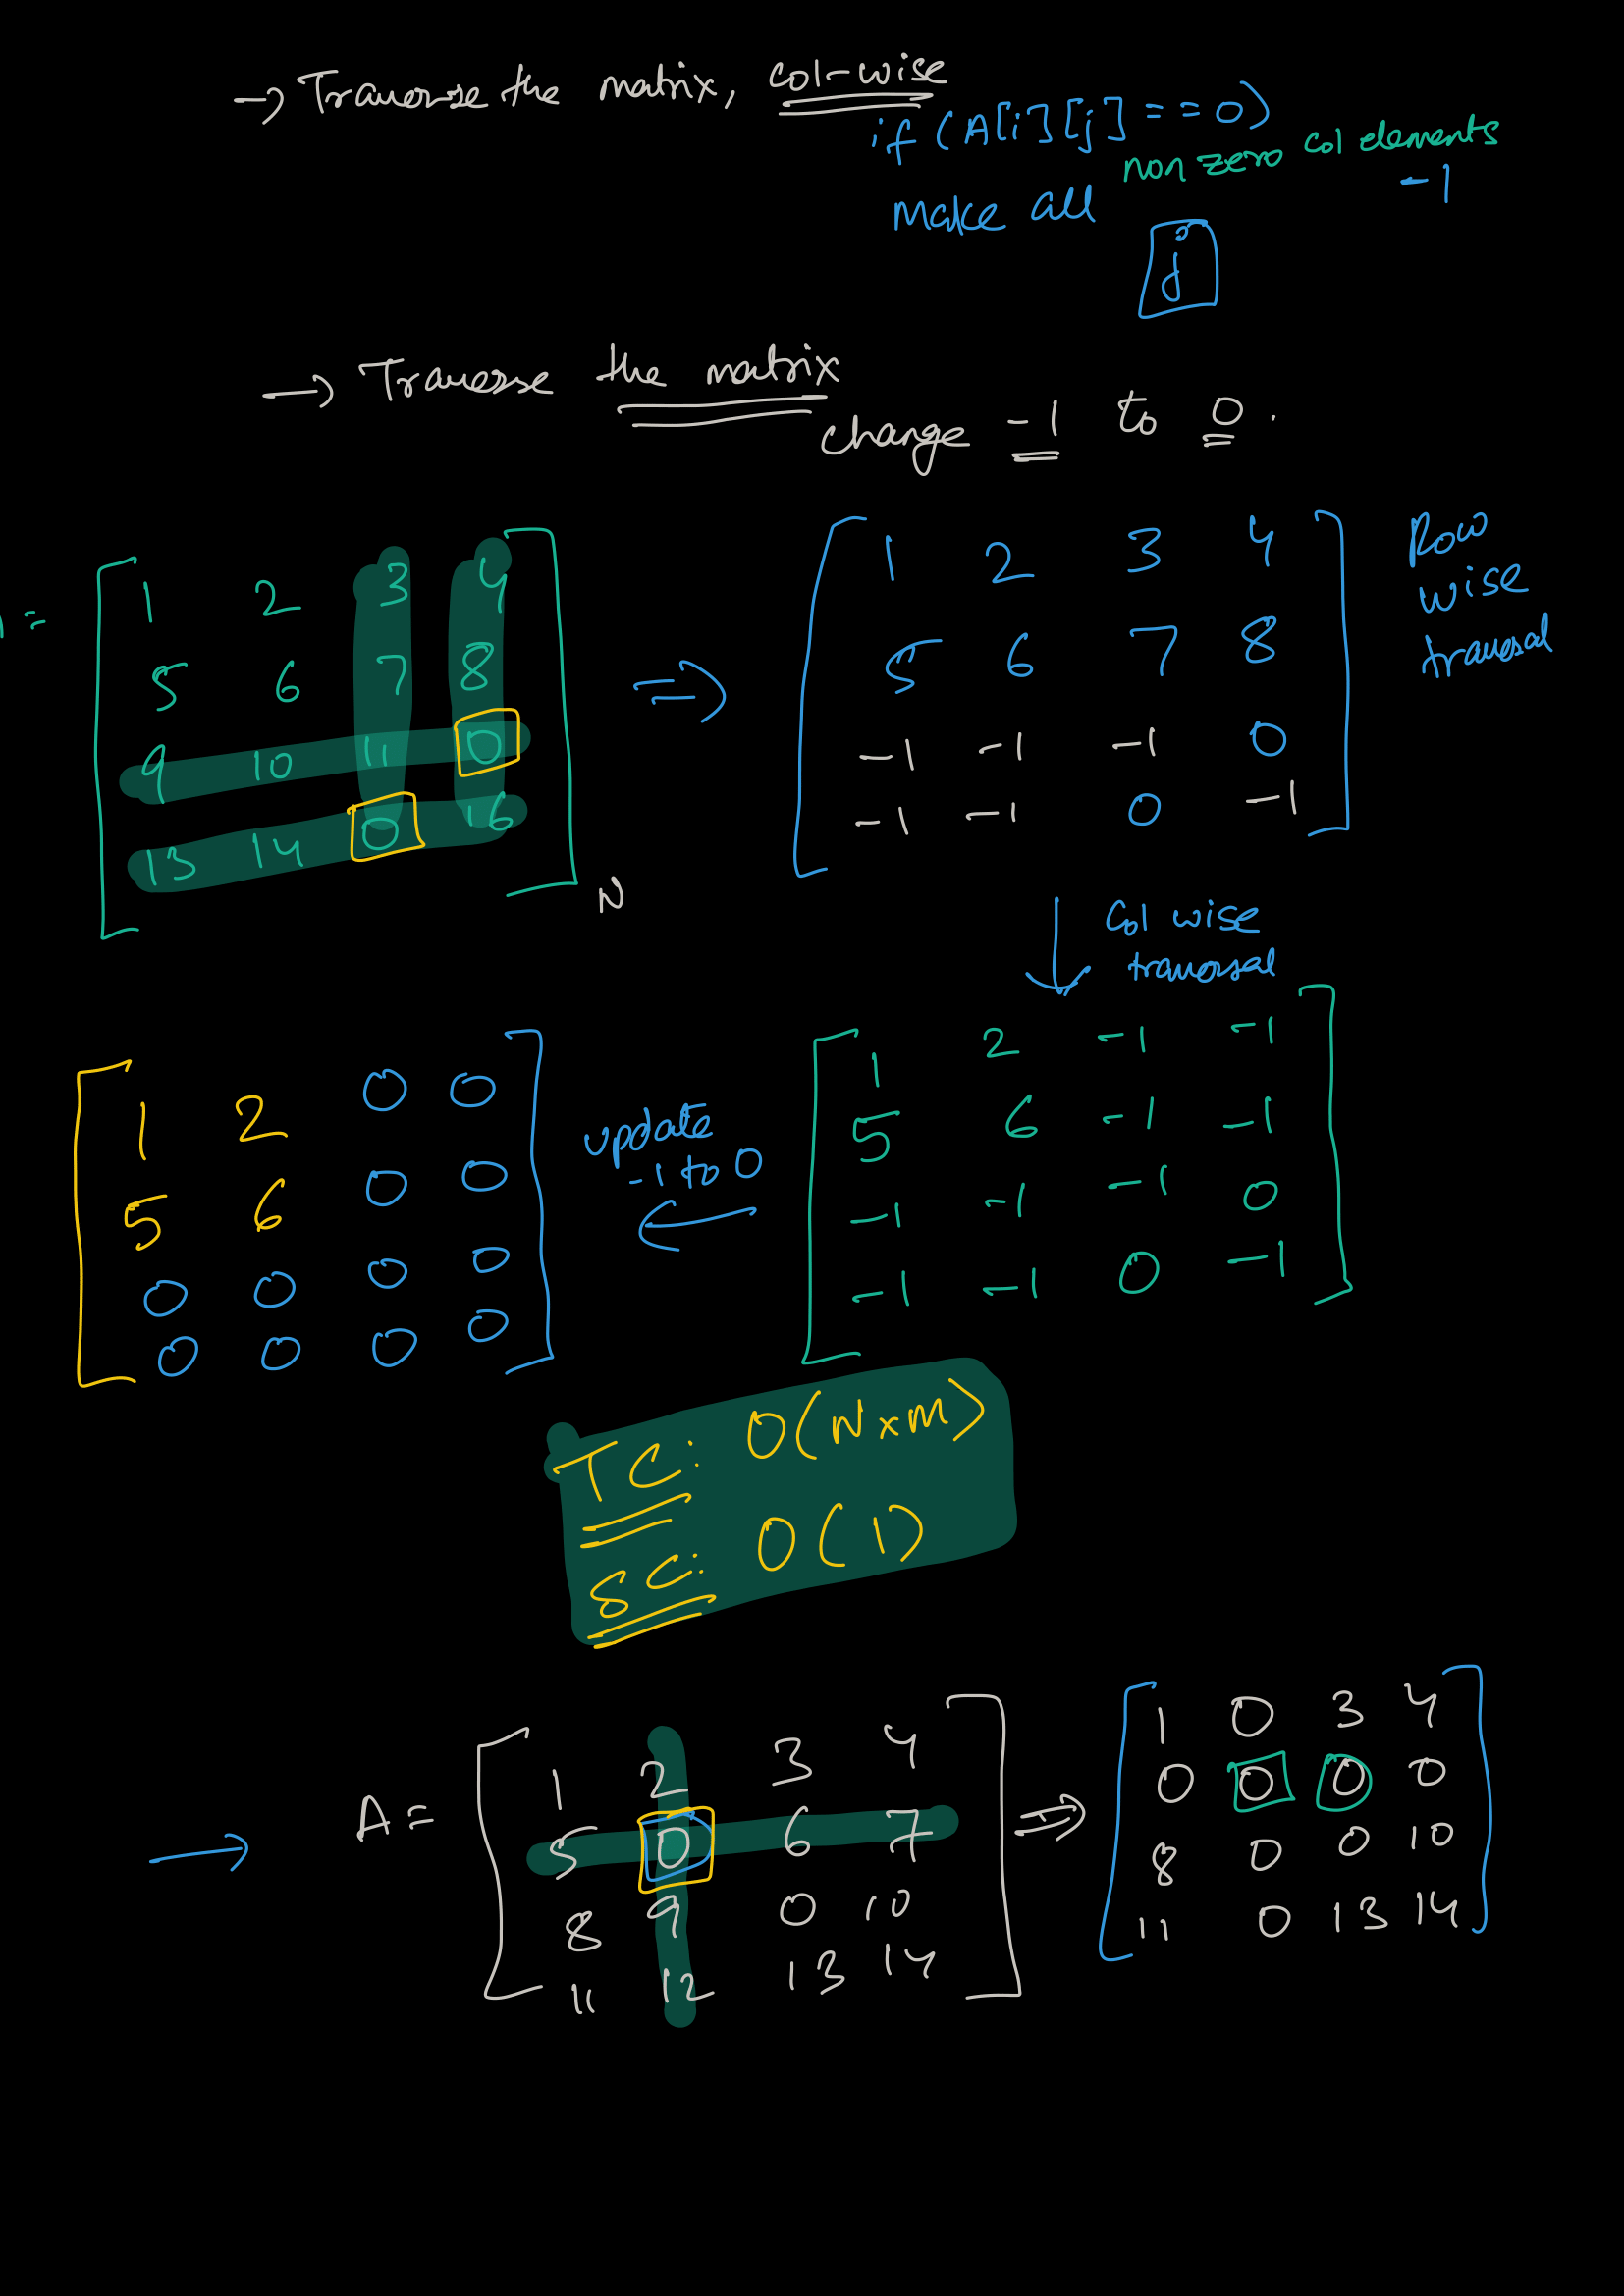 → Traverse the matrix, col-wise
if (A[i][j] == 0)
make all non zero col elements -1
j
→ Traverse the matrix
change -1 to 0.
=
1 2 3 4
5 6 7 8
9 10 11 0
13 14 0 16
N
⇒
1 2 3 4
5 6 7 8
-1 -1 -1 0
-1 -1 0 -1
Row
wise
traversal
↓ Col wise
traversal
1 2 -1 -1
5 6 -1 -1
-1 -1 -1 0
-1 -1 0 -1
update
-1 to 0
←
1 2 0 0
5 6 0 0
0 0 0 0
0 0 0 0
TC: O(N×M)
SC: O(1)
→ A =
1 2 3 4
5 0 6 7
8 9 0 10
11 12 13 14
⇒
1 0 3 4
0 0 0 0
8 0 0 10
11 0 13 14